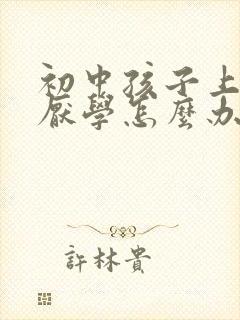 初中孩子上
厭學怎麼办
許林貴